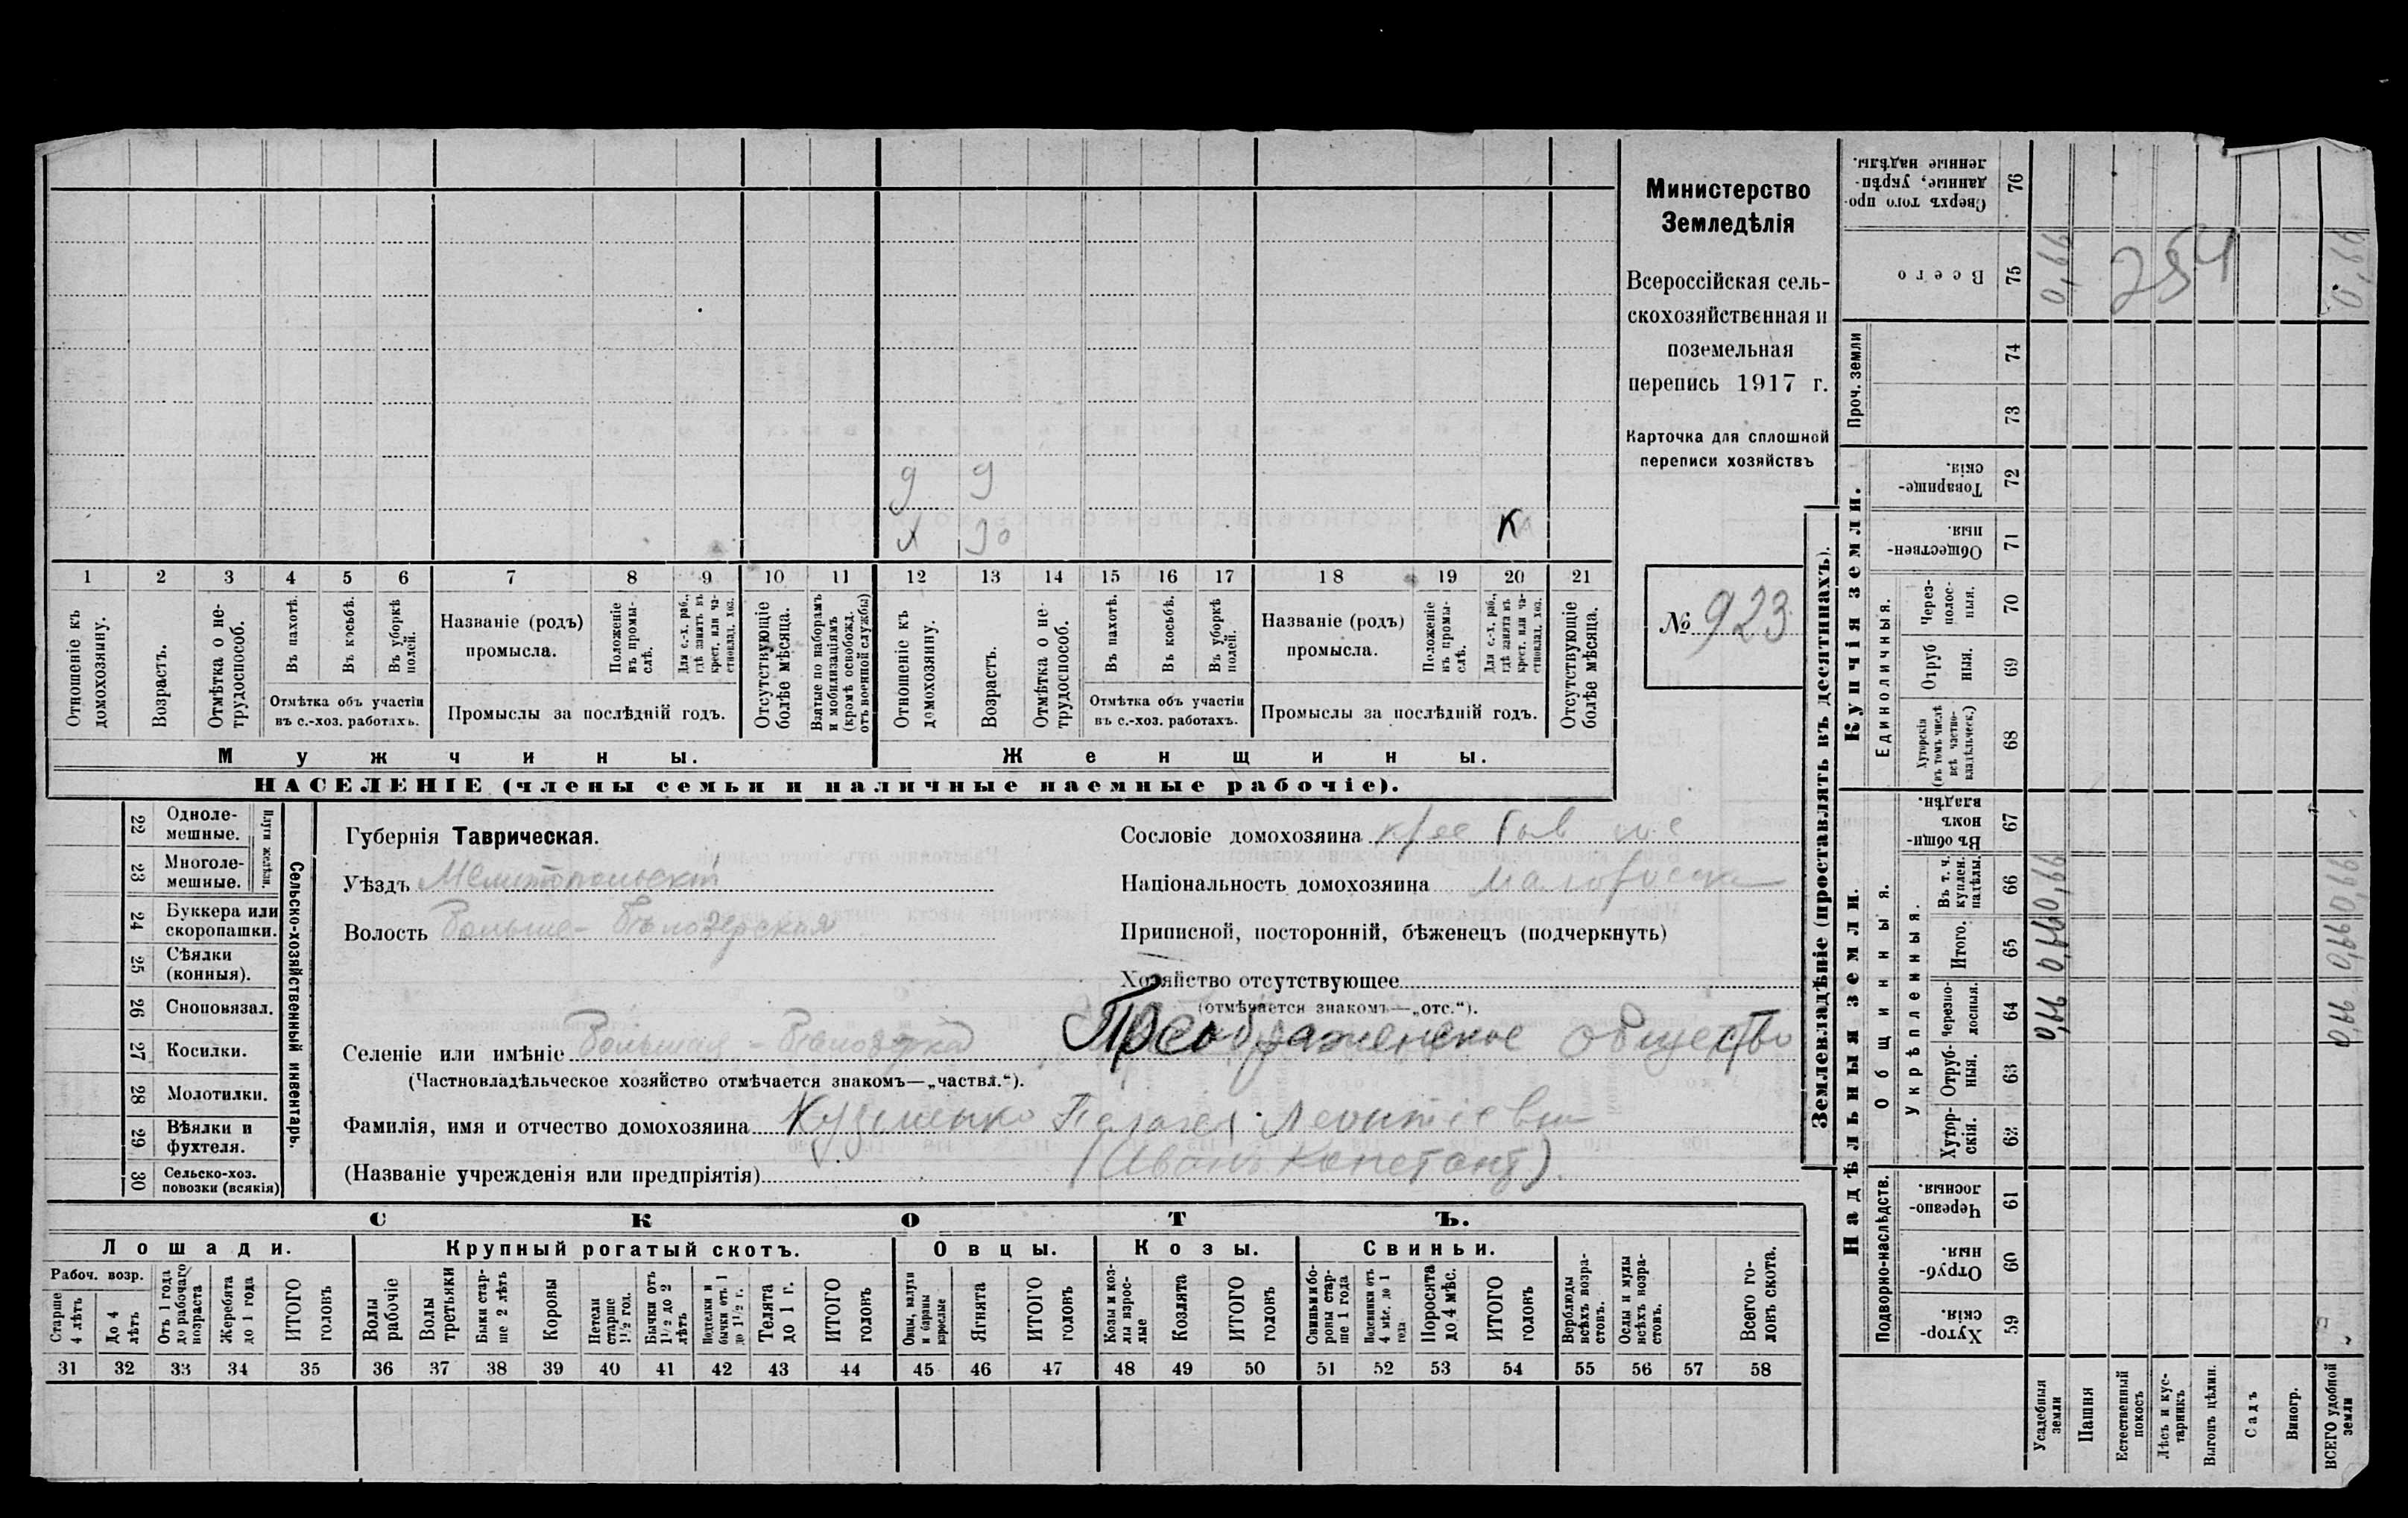 Министерство
Земледѣлія
Всероссійская сель-
скохозяйственная и
поземельная
перепись 1917 г.
Карточка для сплошной
переписи хозяйствъ
№ 923
д 9
х 30 К
1 2 3 4 5 6 7 8 9 10 11 12 13 14 15 16 17 18 19 20 21
Отношеніе къ домохозяину.
Возрастъ.
Отмѣтка о не-трудоспособ.
Въ пахотѣ.
Въ косьбѣ.
Въ уборкѣ полей.
Отмѣтка объ участіи
въ с.-хоз. работахъ.
Названіе (родъ)
промысла.
Положеніе въ промы-слѣ.
Для с.-х. раб., гдѣ занятъ въ крест. или ча-стновлад. хоз.
Промыслы за послѣдній годъ.
Отсутствующіе болѣе мѣсяца.
Взятые по наборамъ и мобилизаціямъ (кромѣ освобожд. отъ военной службы)
Отношеніе къ домохозяину.
Возрастъ.
Отмѣтка о не-трудоспособ.
Въ пахотѣ.
Въ косьбѣ.
Въ уборкѣ полей.
Отмѣтка объ участіи
въ с.-хоз. работахъ.
Названіе (родъ)
промысла.
Положеніе въ промы-слѣ.
Для с.-х. раб., гдѣ занята въ крест. или ча-стновлад. хоз.
Промыслы за послѣдній годъ.
Отсутствующіе болѣе мѣсяца.
Мужчины. Женщины.
НАСЕЛЕНІЕ (члены семьи и наличные наемные рабочіе).
Сельско-хозяйственный инвентарь.
Плуги желѣзн.
22 Одноле-мешные.
23 Многоле-мешные.
24 Буккера или скоропашки.
25 Сѣялки (конныя).
26 Сноповязал.
27 Косилки.
28 Молотилки.
29 Вѣялки и фухтеля.
30 Сельско-хоз. повозки (всякія)
Губернія Таврическая.
Уѣздъ Мелитопольскій
Волость Больше-Бѣлозерская
Сословіе домохозяина
Національность домохозяина малоросска
Приписной, посторонній, бѣженецъ (подчеркнуть)
Хозяйство отсутствующее
(отмѣчается знакомъ—„отс.“).
Селеніе или имѣніе Большая-Бѣлозерка Преображенское общество
(Частновладѣльческое хозяйство отмѣчается знакомъ—„частвл.“).
Фамилія, имя и отчество домохозяина Кузьменко Пелагея Леонтіевн
(Названіе учрежденія или предпріятія) (Иванъ Констант)
СКОТЪ.
Лошади. Крупный рогатый скотъ. Овцы. Козы. Свиньи.
Рабоч. возр.
Старше 4 лѣтъ
До 4 лѣтъ
Отъ 1 года до рабочаго возраста
Жеребята до 1 года
ИТОГО головъ
Волы рабочіе
Волы третьяки
Быки стар-ше 2 лѣтъ
Коровы
Нетели старше 1½ год.
Бычки отъ 1½ до 2 лѣтъ
Подтелки и бычки отъ 1 до 1½ г.
Телята до 1 г.
ИТОГО головъ
Овцы, валухи и бараны взрослые
Ягнята
ИТОГО головъ
Козы и коз-лы взрос-лые
Козлята
ИТОГО головъ
Свиньи и бо-ровы стар-ше 1 года
Подсвинки отъ 4 мѣс. до 1 года
Поросята до 4 мѣс.
ИТОГО головъ
Верблюды всѣхъ возра-стовъ.
Ослы и мулы всѣхъ возра-стовъ.
Всего го-ловъ скота.
31 32 33 34 35 36 37 38 39 40 41 42 43 44 45 46 47 48 49 50 51 52 53 54 55 56 57 58
Землевладѣніе (проставлять въ десятинахъ).
Надѣльныя земли. Купчія земли. Проч. земли
Подворно-наслѣдств.
Общинныя.
Укрѣпленныя.
Единоличныя.
Хутор-скія. 59
Отруб-ныя. 60
Черезпо-лосныя. 61
Хутор-скія. 62
Отруб-ныя. 63
Черезпо-лосныя. 64
Итого. 65
Въ т. ч. куплен. надѣлы. 66
Въ общи-номъ владѣн. 67
Хуторскія (въ томъ числѣ всѣ частно-владѣльческ.) 68
Отруб ныя. 69
Через-полос-ныя. 70
Обществен-ныя. 71
Товарище-скія. 72
73
74
Всего 75
Сверхъ того про-данные, укрѣп-ленные надѣлы. 76
Усадебныя земли 0,66 0,66 0,66 0,66
Пашня
Естественный покосъ
Лѣсъ и кус-тарникъ
Выгонъ цѣлин.
Садъ
Виногр.
ВСЕГО удобной земли 0,66 0,66 0,66 0,66
254